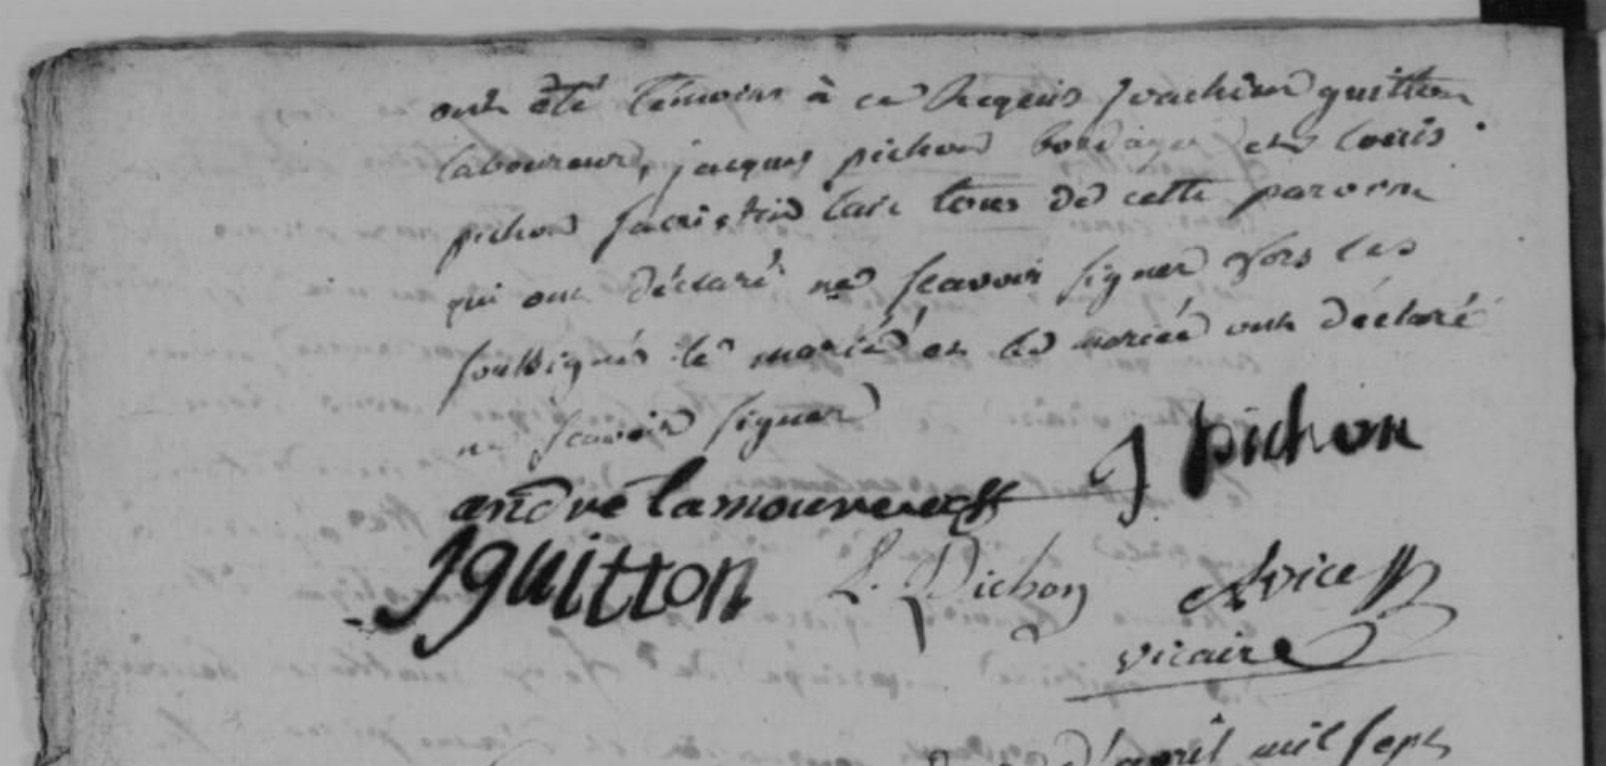 ont été témoins à ce requis joachim guitton
laboureur, jacques pichon bordager et louis
pichon sacristin laic tous de cette paroisse
qui ont déclaré ne scavoir signer fors les
soussignés le marié et la mariée ont déclaré
ne scavoir signer
andre lamoureux J pichon
J guitton L. Pichon Avice
vicaire
d'avril mil sept